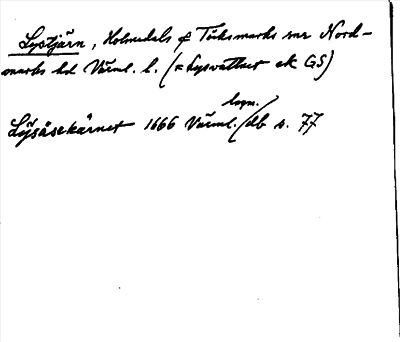 Lystjärn, Holmedals & Töksmarks snr Nord-
marks hd Värml. l. (= Lysvattnet ek GS)
lagm.
Lÿsåsekärnet 1666 Värml./db s. 77